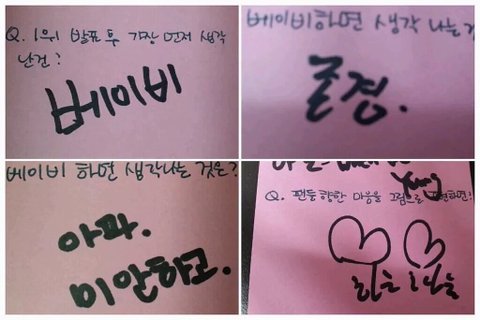 Q. 1위 발표 후 가장 먼저 생각
난건?
베이비
베이비하면 생각나는
존경.
베이비 하면 생각나는 것은?
아파.
미안하고.
Q. 팬들 향한 마음을 그림으로 표현하면?